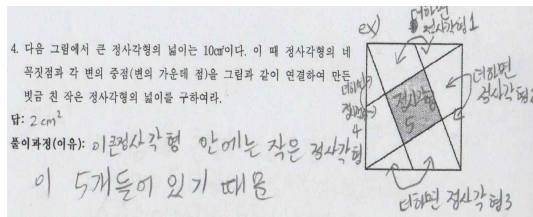 ex)
더하면
정사각형1
4. 다음 그림에서 큰 정사각형의 넓이는 10㎠이다. 이 때 정사각형의 네
꼭짓점과 각 변의 중점(변의 가운데 점)을 그림과 같이 연결하여 만든
빗금 친 작은 정사각형의 넓이를 구하여라.
답: 2cm²
풀이과정(이유): 이큰정사각형 안에는 작은 정사각형
이 5개들어 있기 때문
더하면
4
정사각형
5
더하면
정사각형2
더하면 정사각형3